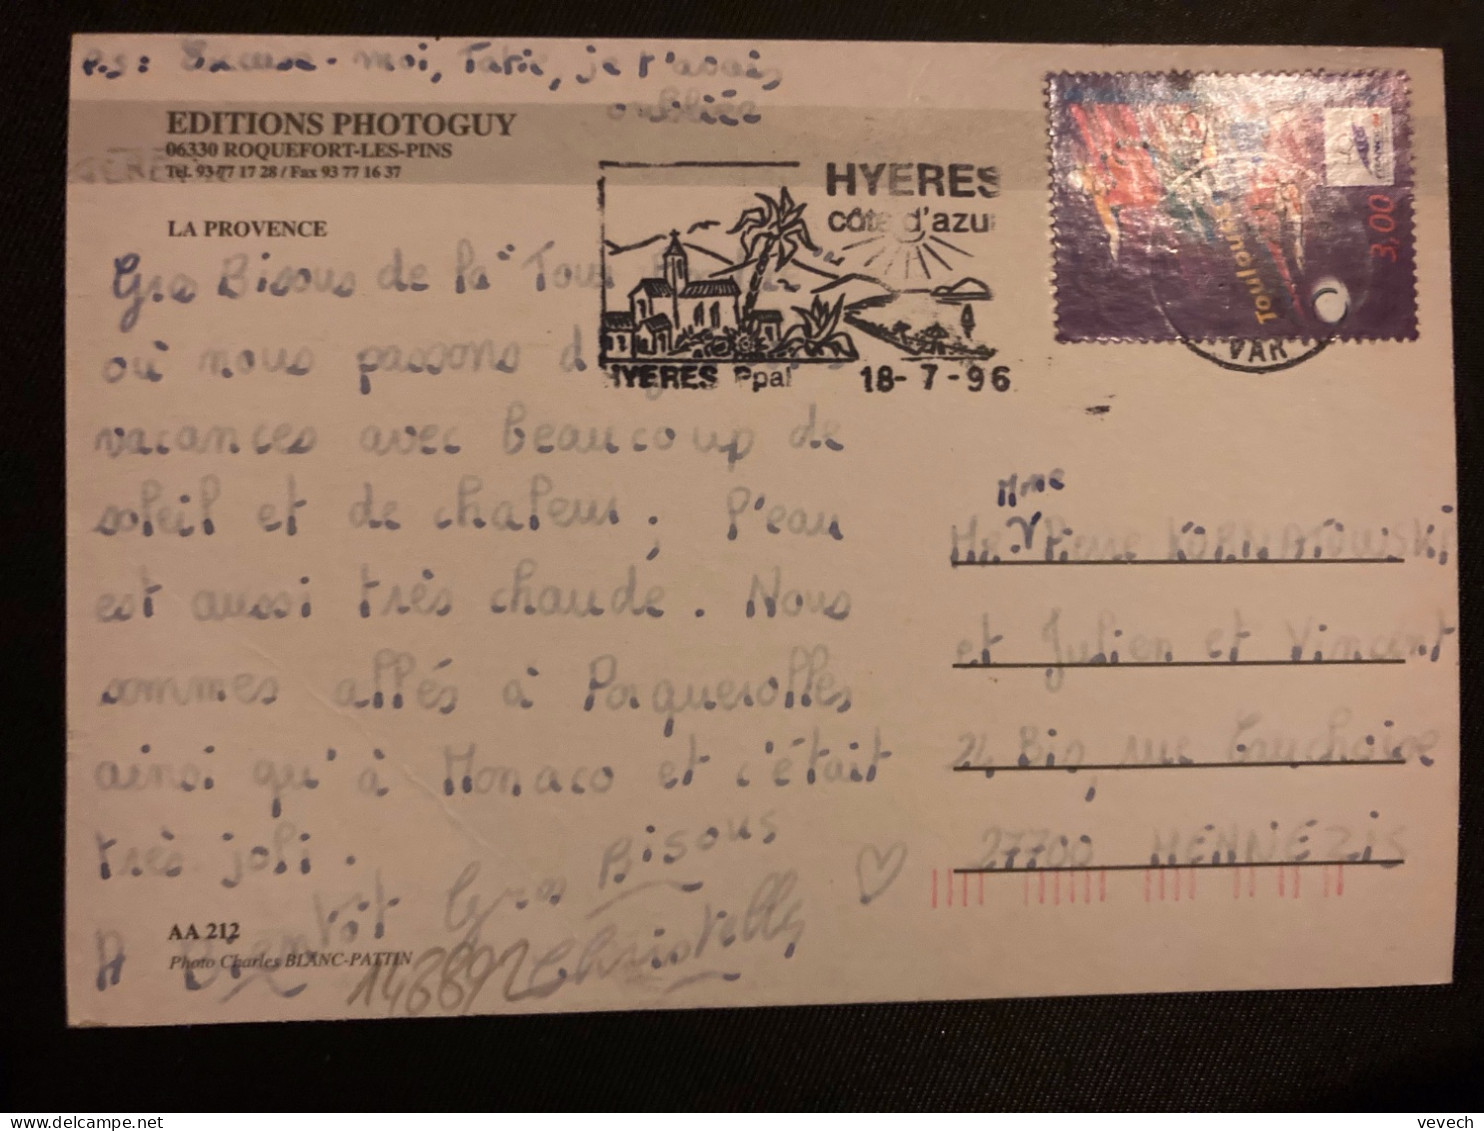 P.S: Excuse-moi, Tatie, je t'avais
oubliée
EDITIONS PHOTOGUY
06330 ROQUEFORT-LES-PINS
Tél. 93 77 17 28 / Fax 93 77 16 37
LA PROVENCE
HYERES
côte d'azur
HYERES Ppal 18-7-96
Toulouse
3,00
VAR
Gros Bisous de la Tour
où nous passons
vacances avec beaucoup de
soleil et de chaleur, l'eau
est aussi très chaude. Nous
sommes allés à Porquerolles
ainsi qu'à Monaco et c'était
très joli.
A Bientôt Gros Bisous
Christelle
AA 212
Photo Charles BLANC-PATTIN
148892
Mme
Mr Pierre KORNATOWSKI
et Julien et Vincent
24 Bis, rue
27700 HENNEZIS
vevech